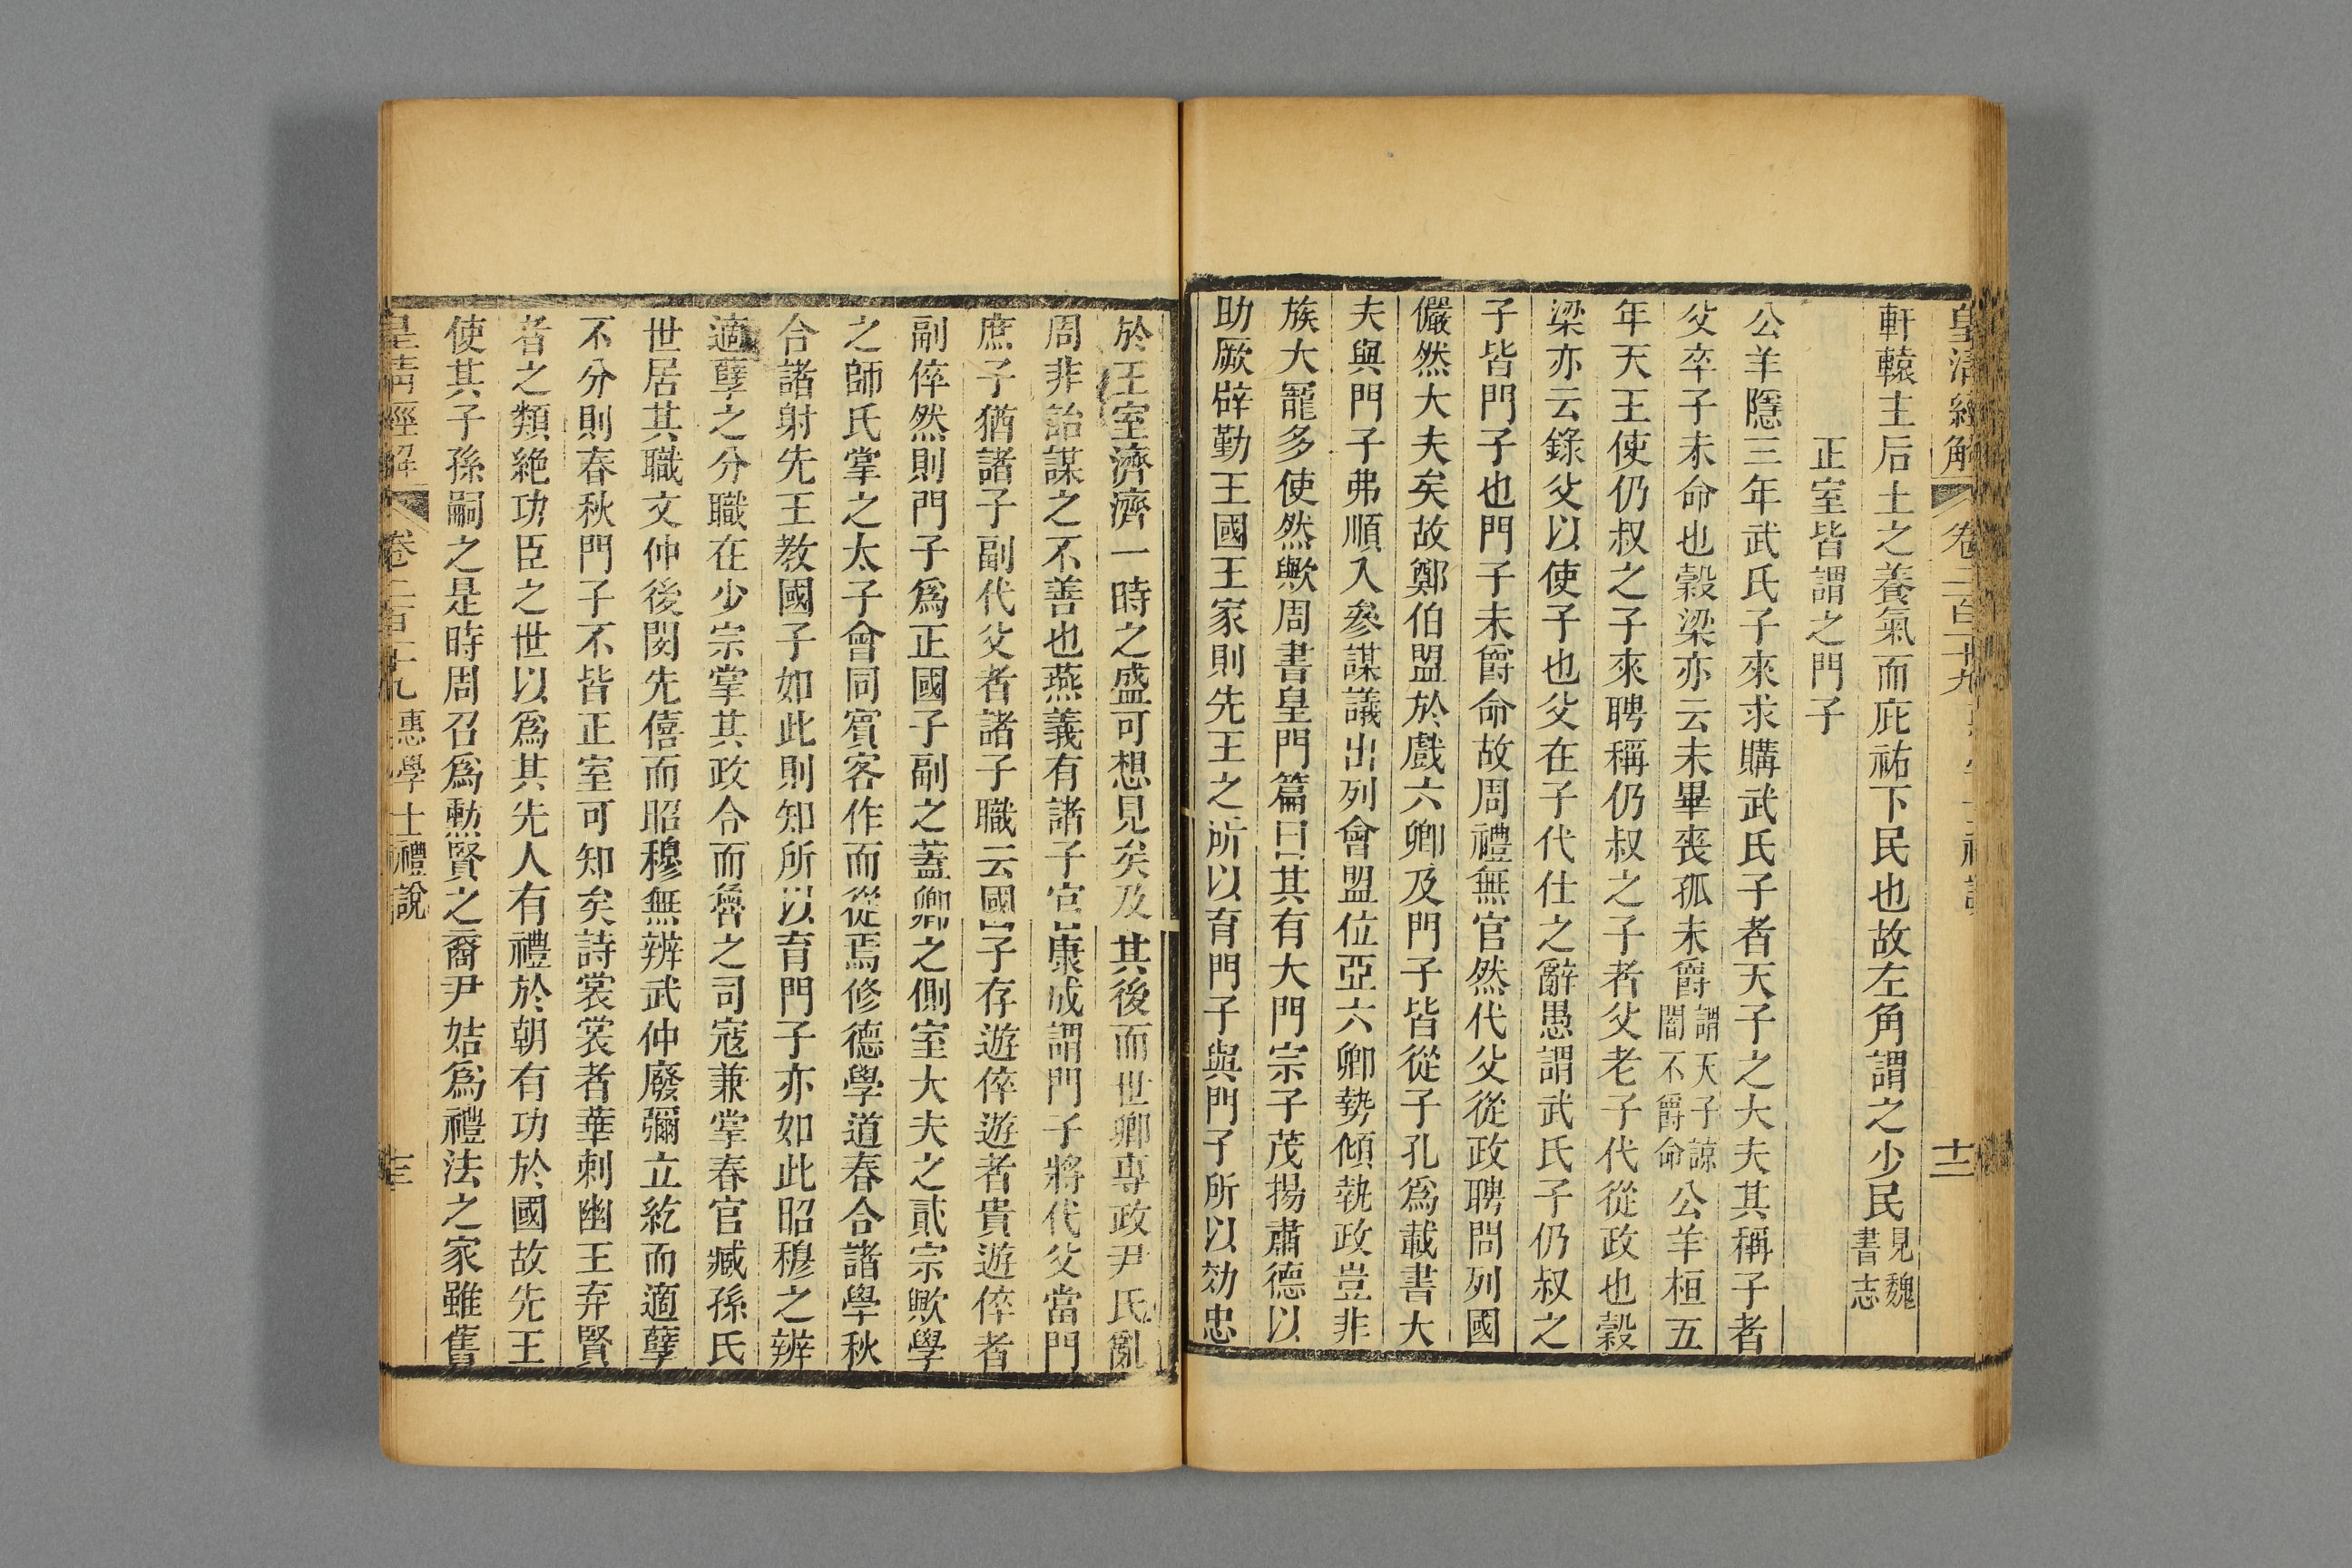 皇清經解 卷二百十九 十二
軒轅主后土之養氣而庇祐下民也故左角謂之少民見魏書志
正室皆謂之門子
公羊隱三年武氏子來求賻武氏子者天子之大夫其稱子者
父卒子未命也穀梁亦云未畢喪孤未爵謂天子諒闇不爵命公羊桓五
年天王使仍叔之子來聘稱仍叔之子者父老子代從政也穀
梁亦云錄父以使子也父在子代仕之辭愚謂武氏子仍叔之
子皆門子也門子未爵命故周禮無官然代父從政聘問列國
儼然大夫矣故鄭伯盟於戲六卿及門子皆從子孔爲載書大
夫與門子弗順入參謀議出列會盟位亞六卿勢傾執政豈非
族大寵多使然歟周書皇門篇曰其有大門宗子茂揚肅德以
助厥辟勤王國王家則先王之所以育門子與門子所以効忠
於王室濟濟一時之盛可想見矣及其後而世卿專政尹氏亂
周非詒謀之不善也燕義有諸子官康成謂門子將代父當門
庶子猶諸子副代父者諸子職云國子存遊倅遊者貴遊倅者
副倅然則門子爲正國子副之蓋卿之側室大夫之貳宗歟學
之師氏掌之太子會同賓客作而從焉修德學道春合諸學秋
合諸射先王教國子如此則知所以育門子亦如此昭穆之辨
適孽之分職在少宗掌其政令而魯之司寇兼掌春官臧孫氏
世居其職文仲後閔先僖而昭穆無辨武仲廢彌立紇而適孽
不分則春秋門子不皆正室可知矣詩裳裳者華刺幽王弃賢
者之類絶功臣之世以爲其先人有禮於朝有功於國故先王
使其子孫嗣之是時周召爲勲賢之裔尹姞爲禮法之家雖舊
皇清經解 卷二百十九 惠學士禮說 十三